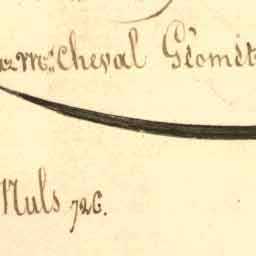 Mr. Cheval Géomèt
Nuls 726.